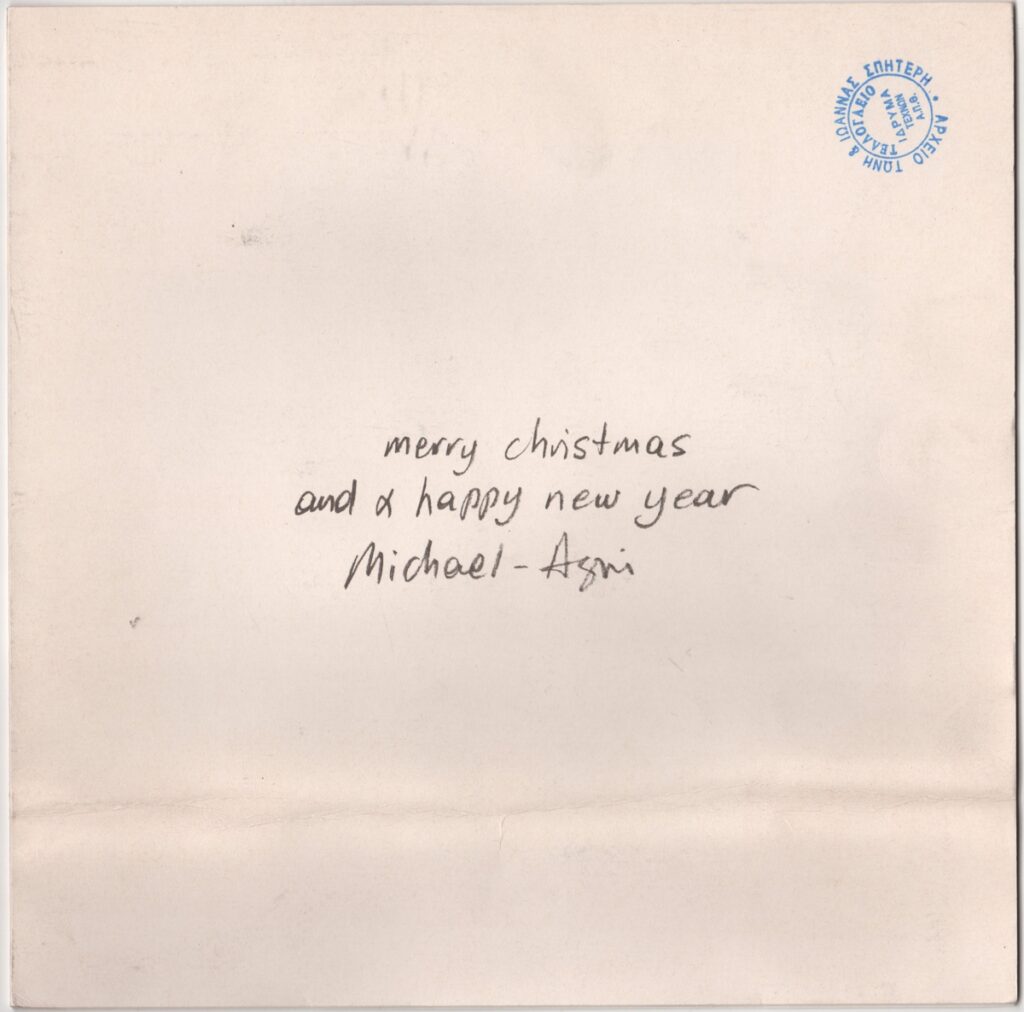 ΑΡΧΕΙΟ ΤΩΝΗ & ΙΩΑΝΝΑΣ ΣΠΗΤΕΡΗ •
ΤΕΛΛΟΓΛΕΙΟ
ΙΔΡΥΜΑ
ΤΕΧΝΩΝ
Α.Π.Θ.
merry christmas
and a happy new year
Michael - Agni